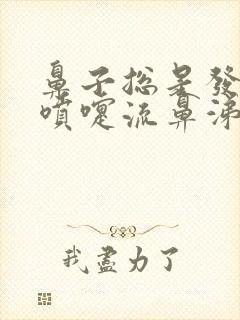 鼻子總是發
噴嚏流鼻涕
我盡力了